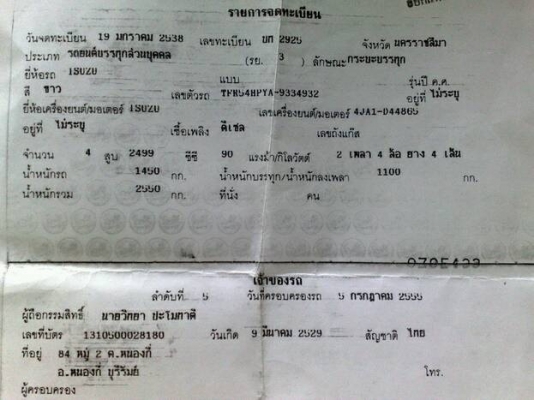 รายการจดทะเบียน
วันจดทะเบียน 19 มกราคม 2538 เลขทะเบียน บท 2925 จังหวัด นครราชสีมา
ประเภท รถยนต์บรรทุกส่วนบุคคล (รย. 3 ) ลักษณะ กระบะบรรทุก
ยี่ห้อรถ ISUZU แบบ รุ่นปี ค.ศ.
สี ขาว เลขตัวรถ TFR54HPYA-9334932 อยู่ที่ ไม่ระบุ
ยี่ห้อเครื่องยนต์/มอเตอร์ ISUZU เลขเครื่องยนต์/มอเตอร์ 4JA1-D44865
อยู่ที่ ไม่ระบุ เชื้อเพลิง ดีเซล เลขถังแก๊ส
จำนวน 4 สูบ 2499 ซีซี 90 แรงม้า/กิโลวัตต์ 2 เพลา 4 ล้อ ยาง 4 เส้น
น้ำหนักรถ 1450 กก. น้ำหนักบรรทุก/น้ำหนักลงเพลา 1100 กก.
น้ำหนักรวม 2550 กก. ที่นั่ง คน
เจ้าของรถ
ลำดับที่ 5 วันที่ครอบครองรถ 5 กรกฎาคม 2555
ผู้ถือกรรมสิทธิ์ นายวิทยา ปะโมทาติ
เลขที่บัตร 1310500028180 วันเกิด 9 มีนาคม 2529 สัญชาติ ไทย
ที่อยู่ 84 หมู่ 2 ต.หนองกี่
อ.หนองกี่ บุรีรัมย์ โทร.
ผู้ครอบครอง